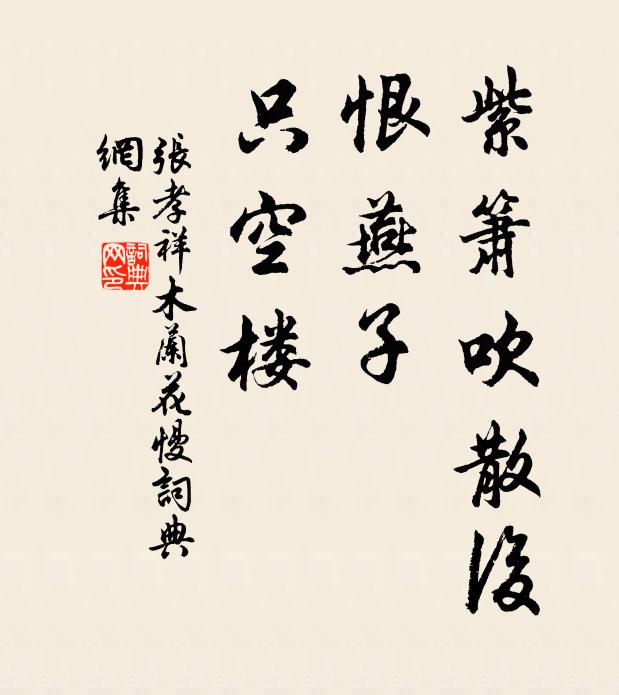 紫箫吹散後
恨燕子
只空楼
張孝祥木蘭花慢詞典
網集
詞典
网印